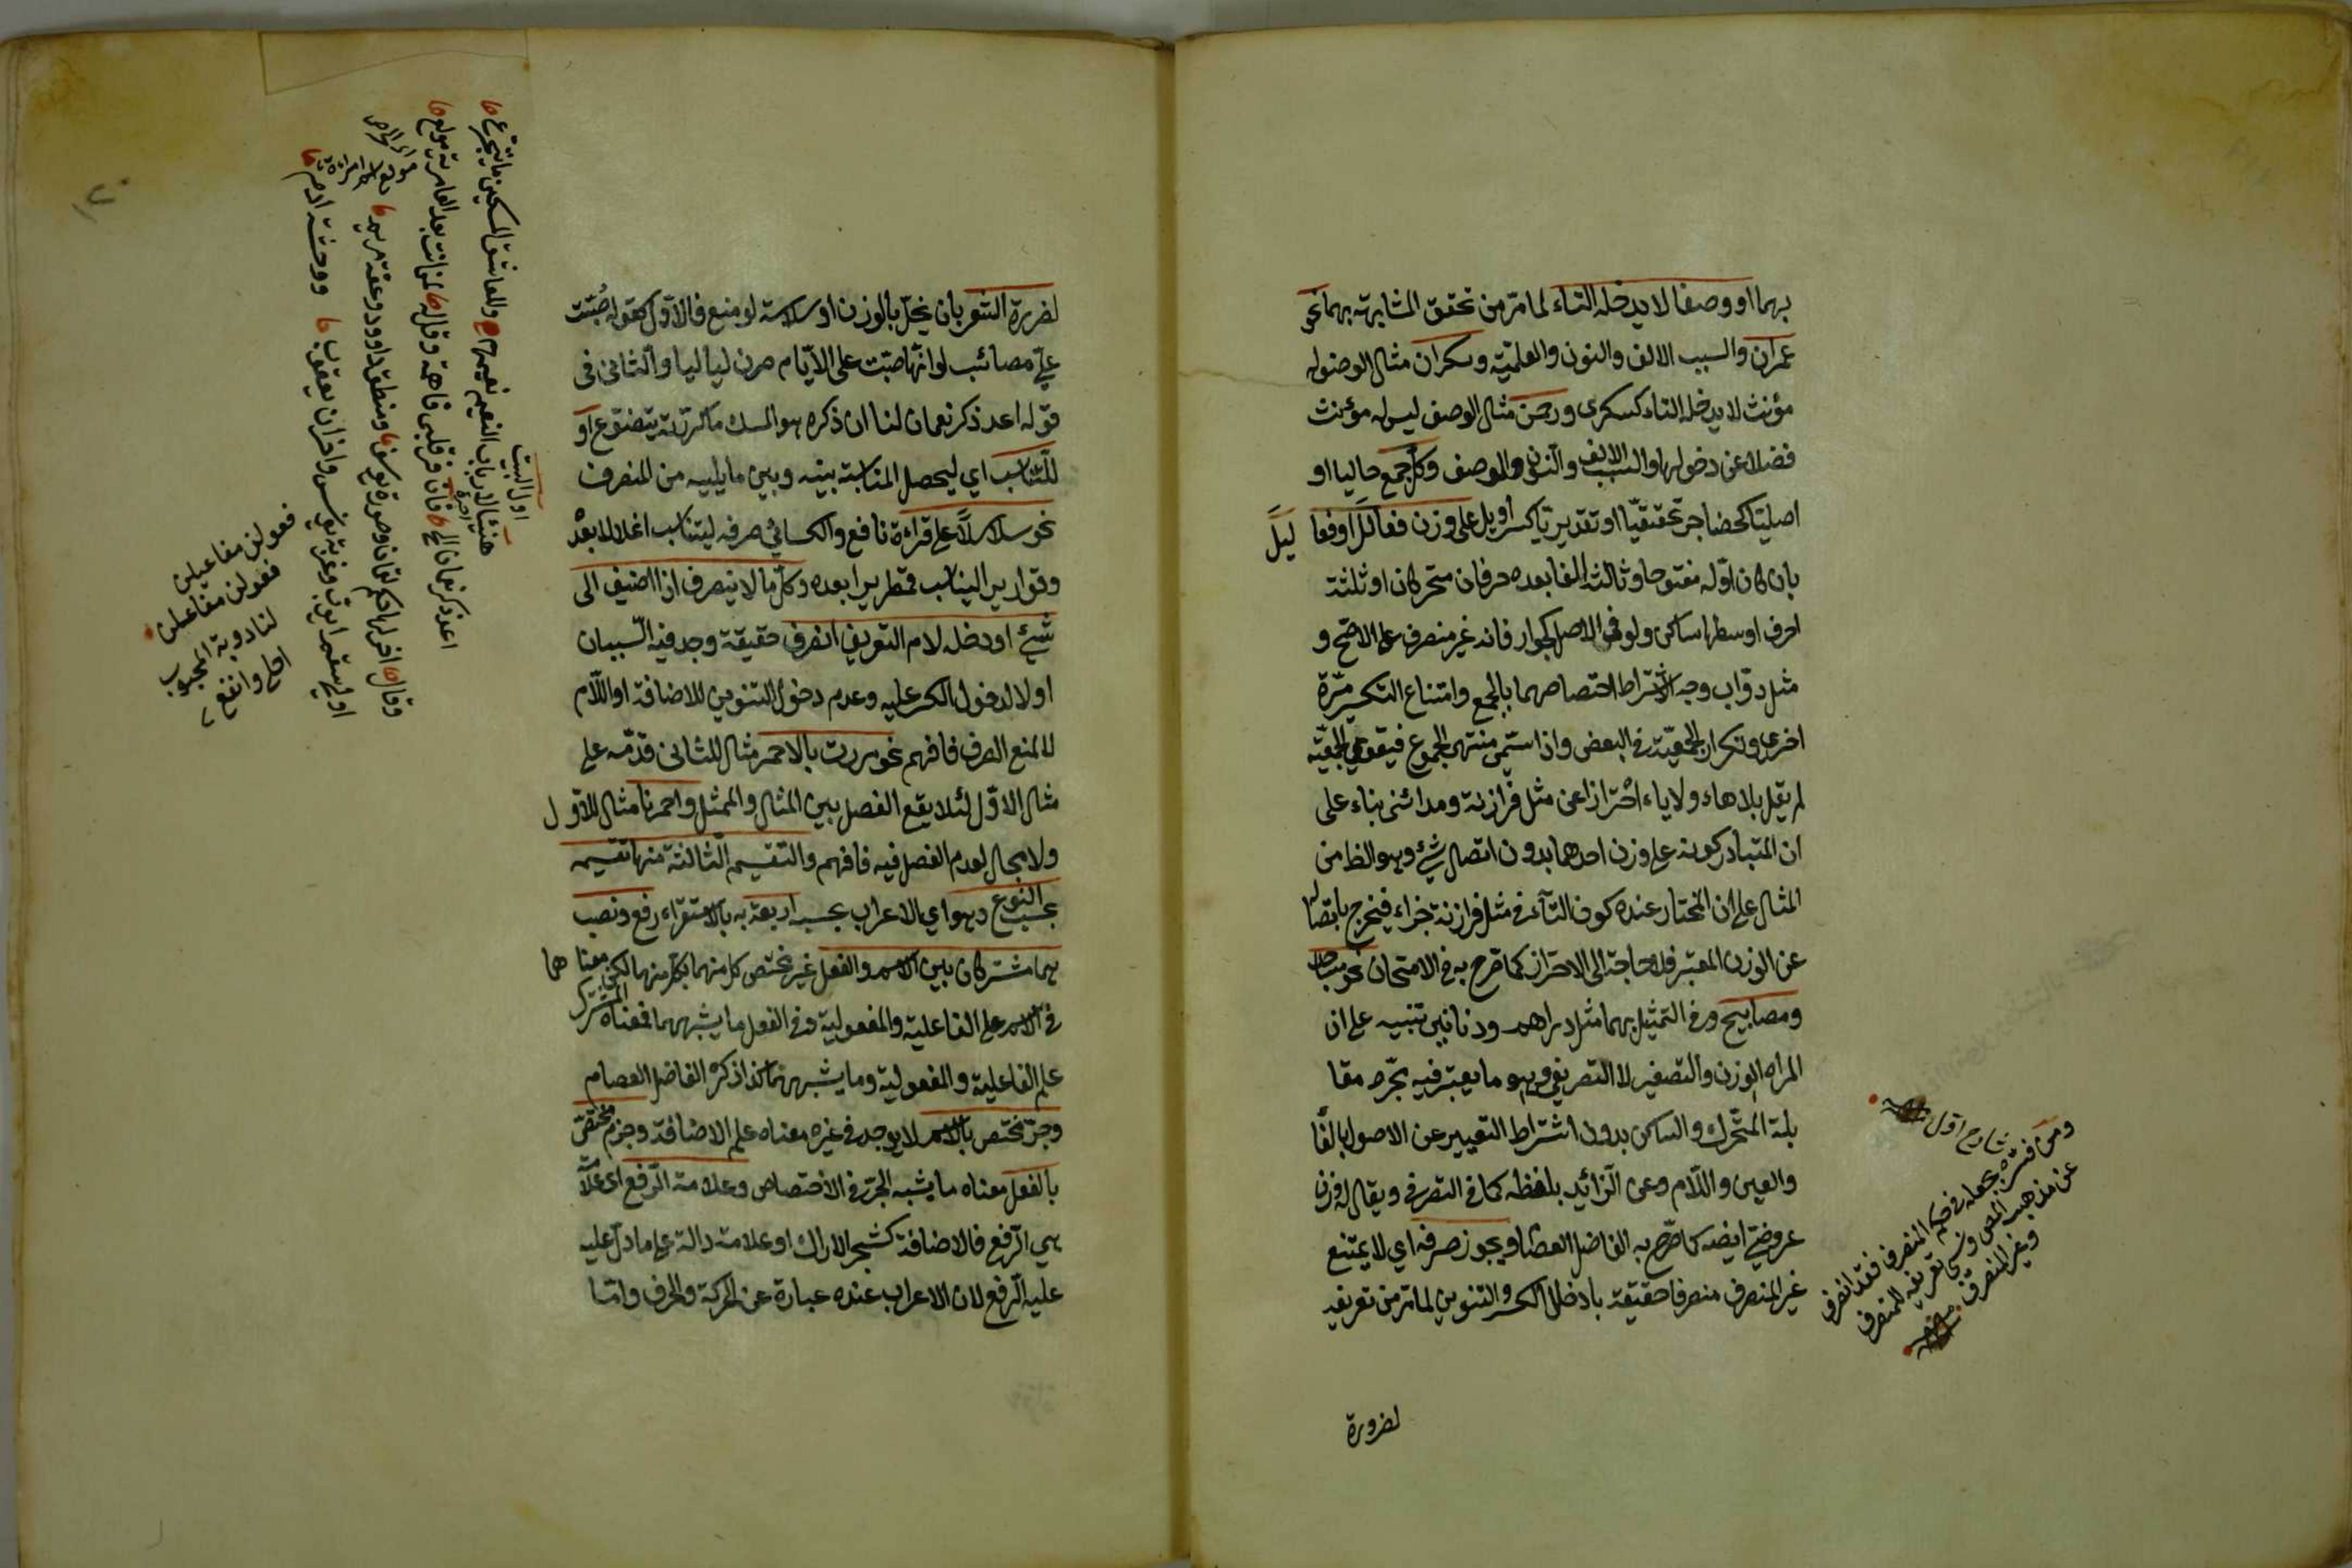 بهما او وصفا لا يدخله التاء لما مرّ من تحقق المشابهة بهما نحو
عمران والسبب الالف والنون والعلميّة وسكران مثال الوصف له
مؤنث لا يدخله التاء كسكرى ورحمن مثال الوصف ليس له مؤنث
فضلا عن دخولها والسبب الالف والنون والوصف وكلّ جمع حاليا او
اصليّا كحضاجر تحقيقيّا او تقديريّا كسراويل على وزن فعالل او فعا ليل
بان كان اوّله مفتوحا وثالثه الفا بعده حرفان متحركان او ثلثة
احرف اوسطها ساكن ولو في الاصل كجوار فانه غير منصرف على الاصح و
مثل دوّاب وجه اشتراط اختصاصهما بالجمع وامتناع التكسير مرّة
اخرى وتكرار الجمعيّة في البعض واذا سمّي منتهى الجموع فيقوى الجمعيّة
لم يقل بلا هاء ولا ياء احترازا عن مثل فرازنة ومدائنى بناء على
ان المتبادر كونه على وزن احدهما بدون اتصال شئ وهو الظ من
المثال على ان المختار عنده كون التاء في مثل فرازنة جزاء فيخرج باتصاله
عن الوزن المعتبر فلا حاجة الى الاحتراز كما صرح به في الامتحان نحو مساجد
ومصابيح وفي التمثيل بهما مثل دراهم ودنانير تنبيه على ان
المراد الوزن والتصغير لا التصريفي وهو ما يعتبر فيه مجرّد مقا
بلة المتحرّك والساكن بدون اشتراط التعبير عن الاصول بالفا
والعين واللّام وعن الزائد بلفظه كما في التصرفي ويقال له وزن
عروضيّ ايضه كما صرّح به الفاضل العصام ويجوز صرفه اي لا يمتنع
غير المنصرف منصرفا حقيقة بادخال الكسر والتنوين لما مرّ من تعريفه
لضرورة
شارح اوّل
ومن فسّره بجعله في حكم المنصرف فقد انصرف
عن مذهب المص ونسى تعريفه للمنصرف
وغير المنصرف
لضررة الشعر بان يخلّ بالوزن او سلاسته لو منع فالاوّل كقوله صُبّت
عليّ مصائب لو انّها صبّت على الايّام صرن لياليا والثاني في
قوله اعد ذكر نعمان لنا ان ذكره هو المسك ما كرّرته يتضوّع او
للتّناسب اي ليحصل المناسبة بينه وبين ما يليه من المنصرف
نحو سلاسلاً على قراءة نافع والكسائي صرفه ليتناسب اغلالا بعْد
وقوارير اليناسب قمطريرا بعده وكلّ ما لا ينصرف اذا اضيف الى
شئ او دخله لام التعريف انصرف حقيقة وجد فيه السّببان
اولا لدخول الكسر عليه وعدم دخول التنوين للاضافة او اللّام
لا لمنع الصرف فافهم نحو مررت بالاحمر مثال للثاني قدّمه على
مثال الاوّل لئلا يقع الفصل بين المثال والممثل واحمرنا مثال للاوّل
ولا مجال لعدم الفصل فيه فافهم والتقسيم الثالثة منها تقسيمه
بحسب النوع وهو اي الاعراب بحسبه اربعة به بالاستقراء رفع ونصب
هما مشتركان بين الاسم والفعل غير مختص كل منهما بكل منهما لكن معناهما
في الاسم علم الفاعلية والمفعولية وفي الفعل ما يشبههما فمعناه المشترك
علم الفاعلية والمفعولية وما يشبههما كذا ذكره الفاضل العصام
وجرّ مختص بالاسم لا يوجد في غيره معناه علم الاضافة وجزم مختصّ
بالفعل معناه ما يشبه الجرّ في الاختصاص وعلامة الرّفع اى علامة
هي الرّفع فالاضافة كشجر الاراك او علامة دالة على ما دلّ عليه
عليه الرّفع لان الاعراب عنده عبارة عن الحركة والحرف وامّا
اول البيت
هنيئا لارباب النعيم نعيمهم وللعاشق المسكين ما يتجرّع
اعد ذكر نعمان
فعولن مفاعيلن
فعولن مفاعلن